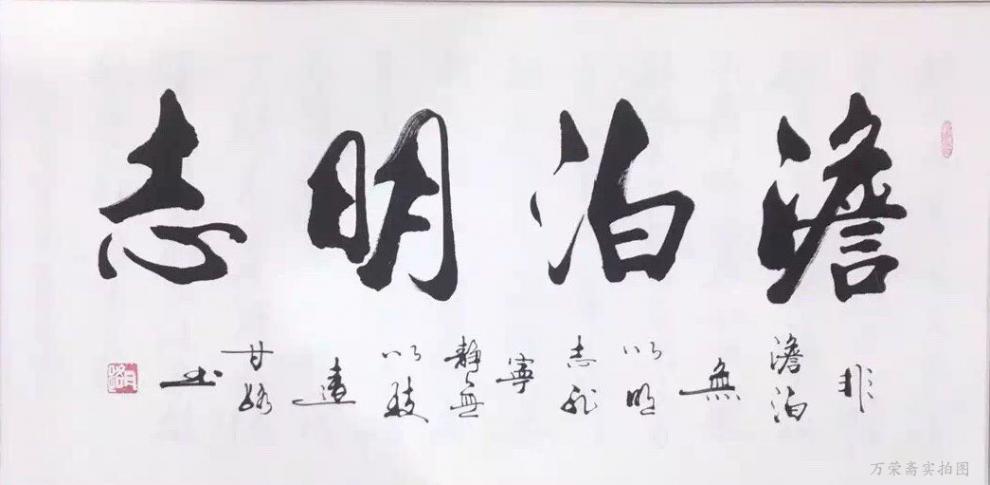 澹泊明志
非澹泊無以明志非寧靜無以致遠
甘 书
万荣斋实拍图